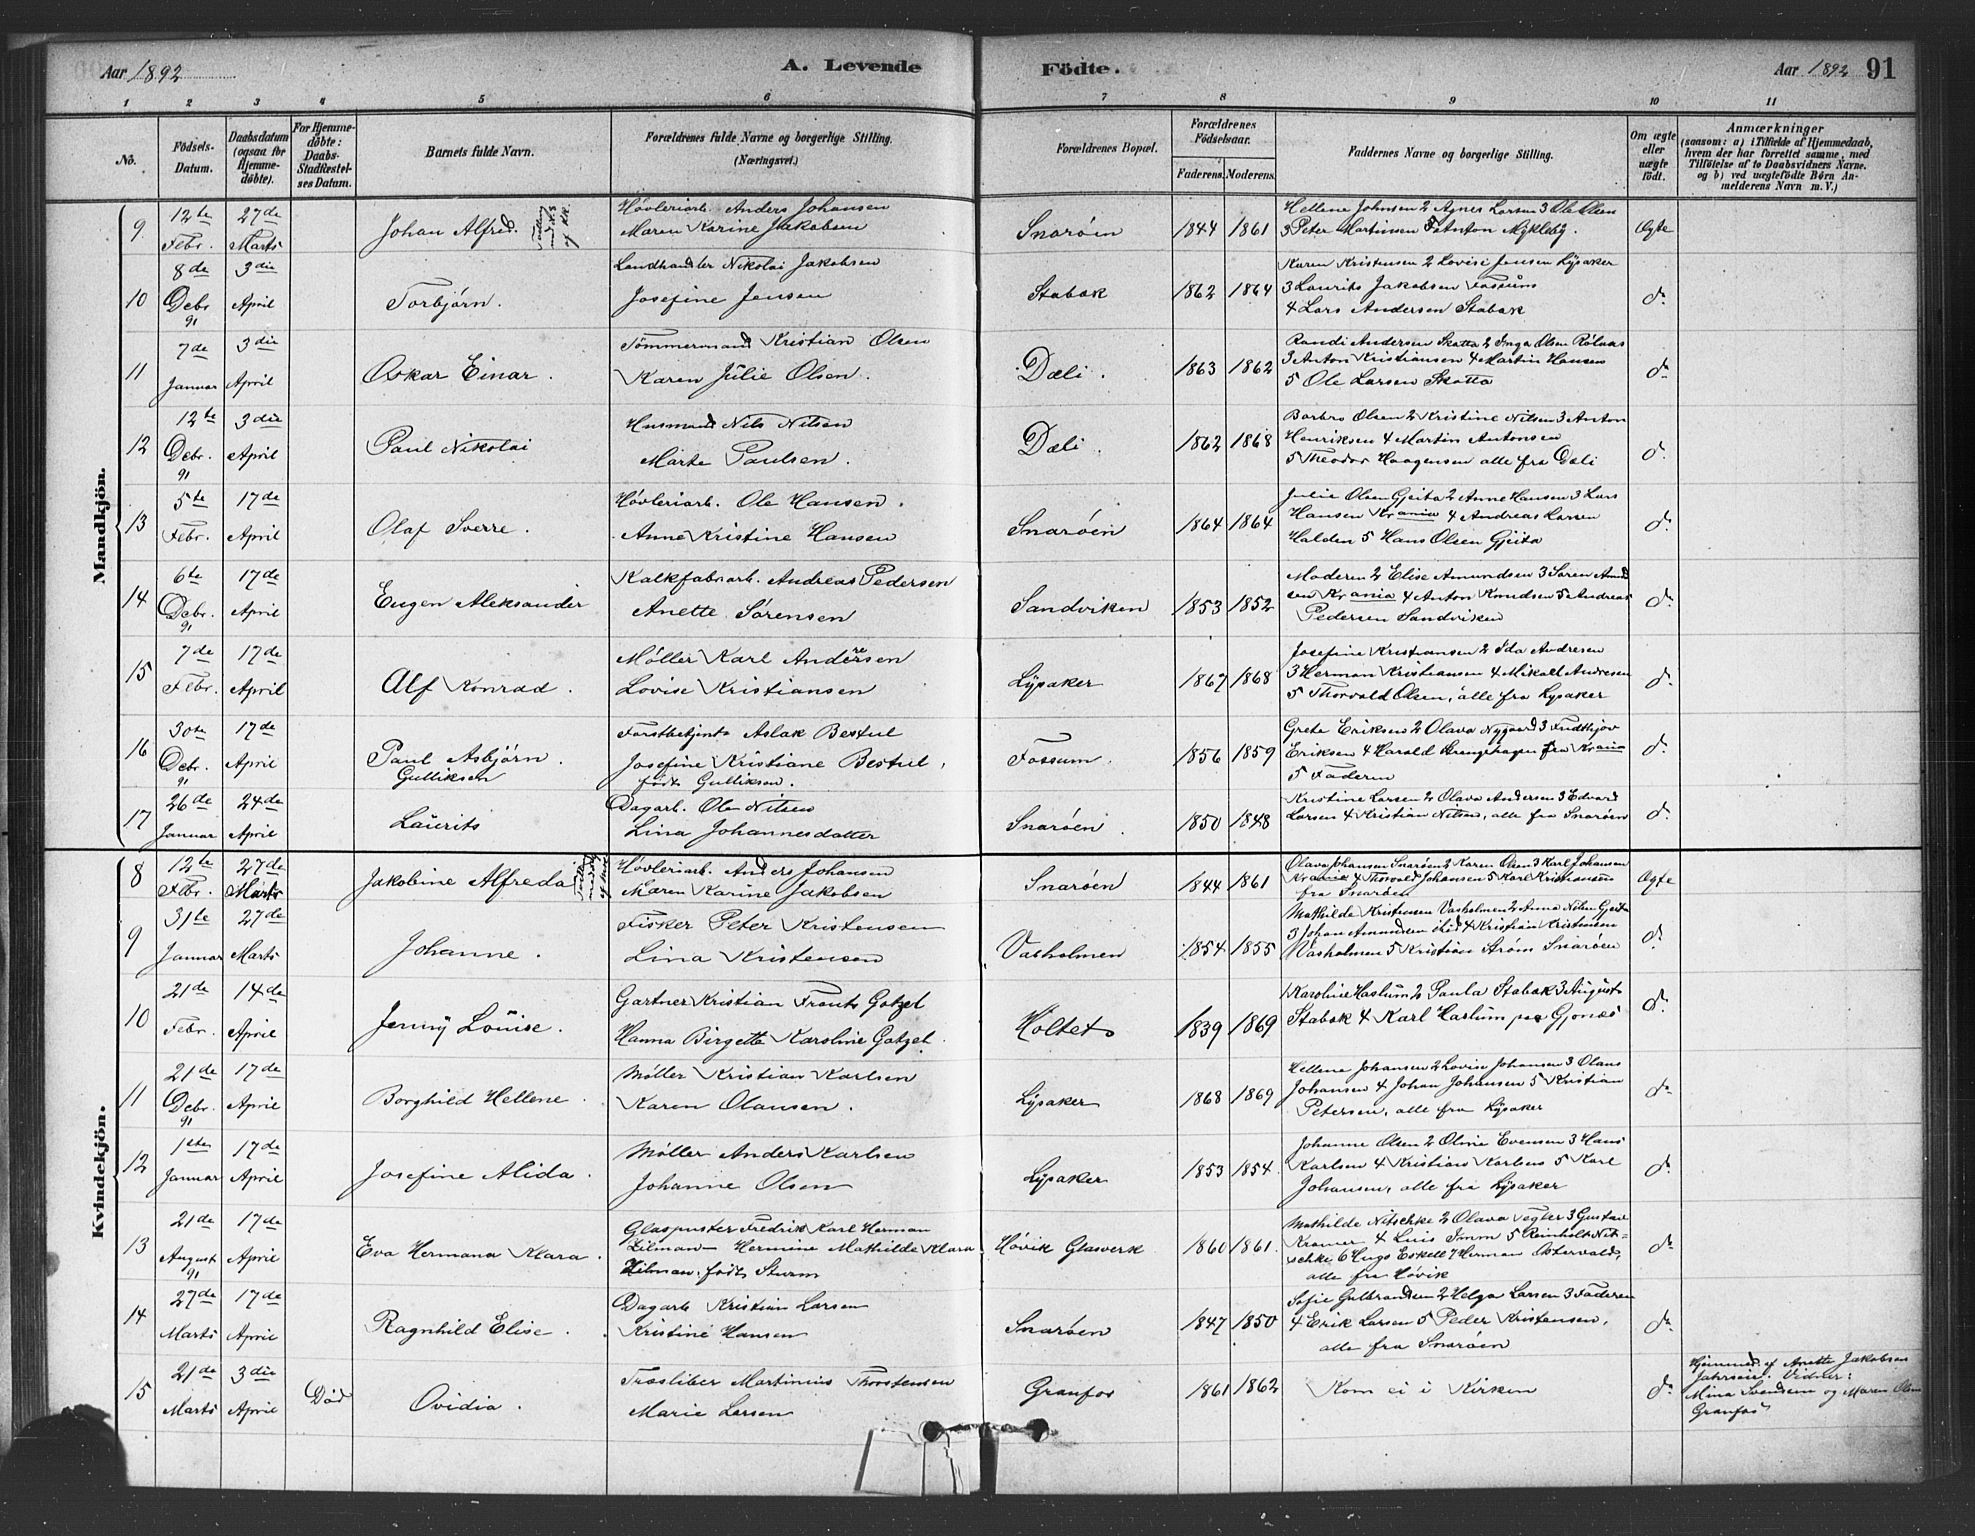 Aar 1892 A. Levende Födte. Aar 1892 91
1 2 3 4 5 6 7 8 9 10 11
No.
Födsels-Datum.
Daabsdatum (ogsaa for Hjemme-döbte).
For Hjemme-döbte: Daabs-Stadfæstel-ses Datum.
Barnets fulde Navn.
Forældrenes fulde Navne og borgerlige Stilling. (Næringsvei.)
Forældrenes Bopæl.
Forældrenes Födselsaar.
Faderens. Moderens.
Faddernes Navne og borgerlige Stilling.
Om ægte eller uægte födt.
Anmærkninger
(saasom: a) i Tilfælde af Hjemmedaab, hvem der har forrettet samme, med Tilföielse af to Daabsvidners Navne. og b) ved uægtefödte Börn Anmelderens Navn m. V.)
Mandkjön.
9 12te Febr. 27de Marts Johan Alfred.
Høvleriarb. Anders Johansen
Maren Karine Jakobsen
Snarøen 1844 1861
Hellene Johnsen 2 Agnes Larsen 3 Ole Olsen
3 Peter Martinsen 5 Anton Mykleby.
Ægte
10 8de Debr. 91 3die April Torbjørn.
Landhandler Nikolai Jakobsen
Josefine Jensen
Stabæk 1862 1864
Karen Kristensen 2 Lovise Jensen Lysaker
3 Laurits Jakobsen Fossum
4 Lars Andersen Stabæk
do
11 7de Januar 3die April Oskar Einar.
Tømmermand Kristian Olsen
Karen Julie Olsen.
Dæli. 1863 1862
Randi Andersen Skotta 2 Inga Olsen
3 Anton Kristiansen 4 Martin Hansen
5 Ole Larsen Skotta
do
12 12te Debr. 91 3die April Paul Nikolai
Husmand Nils Nilsen
Marte Paulsen.
Dæli 1862 1868
Barbro Olsen 2 Kristine Nilsen 3 Anton
Henriksen 4 Martin Antonsen
5 Theodor Haagensen alle fra Dæli
do
13 5te Febr. 17de April Olaf Sverre.
Høvleriarb. Ole Hansen.
Anne Kristine Hansen
Snarøen 1864 1864
Julie Olsen Gjeita 2 Anne Hansen 3 Lars
Hansen Krania 4 Andreas Larsen
Halden 5 Hans Olsen Gjeita
do
14 6te Debr. 91 17de April Eugen Aleksander
Kalkfabriarb. Andreas Pedersen
Anette Sørensen
Sandviken 1853 1852
Moderen 2 Elise Amundsen 3 Søren Amund
sen Krania 4 Anton Knudsen 5 Andreas
Pedersen Sandviken
do
15 7de Febr. 17de April Alf Konrad.
Møller Karl Andersen
Lovise Kristiansen
Lysaker 1867 1868
Josefine Kristiansen 2 Ida Andresen
3 Herman Kristiansen 4 Mikall Andresen
5 Thorvald Olsen, alle fra Lysaker
do
16 30te Debr. 91 17de April Paul Asbjörn. Gulliksen
Forstbetjent Aslak Bestul
Josefine Kristiane Bestul,
født Gulliksen.
Fossum. 1856 1859
Grete Eriksen 2 Olava Nygaard 3 Fridthjov
Eriksen 4 Harald fra Krania
5 Faderen
do
17 26de Januar 24de April Laurits
Dagarb. Ole Nilsen
Lina Johannesdatter
Snarøen. 1850 1848
Kristine Larsen 2 Olava Andersen 3 Edvard
Larsen 4 Kristian Nilsen, alle fra Snarøen
do
Kvindekjön.
8 12te Febr. 27de Marts Jakobine Alfreda
Høvleriarb. Anders Johansen
Maren Karine Jakobsen
Snarøen 1844 1861
Olava Johansen Snarøen 2 Karen Olsen 3 Karl Johansen
Krania 4 Thorvald Johansen 5 Karl Kristiansen
fra Snarøen
Ægte
9 31te Januar 27de Marts Johanne.
Fisker Peter Kristensen
Lina Kristensen
Vasholmen 1854 1855
Mathilde Kristensen Vasholmen 2 Anna Nilsen Gjeita
3 Johan Amundsen 4 Kristian Kristensen
Vasholmen 5 Kristian Strøm Snarøen
do
10 21de Febr. 14de April Jenny Louise.
Gartner Kristian Frants Gotzel
Hanna Birgette Karoline Gotzel.
Holtet 1839 1869
1 Karoline Haslum 2 Paula Stabæk 3 August
Stabæk 4 Karl Haslum paa Gjønæs
do
11 21de Debr. 91 17de April Borghild Hellene.
Møller Kristian Karlsen
Karen Olausen.
Lysaker 1868 1869
Hellene Johansen 2 Lovise Johansen 3 Olaus
Johansen 4 Johan Johansen 5 Kristian
Petersen, alle fra Lysaker
do
12 1ste Januar 17de April Josefine Alida.
Møller Anders Karlsen
Johanne Olsen
Lysaker 1853 1854.
Johanne Olsen 2 Oline Evensen 3 Hans
Karlsen 4 Kristian Karlsen 5 Karl
Johansen, alle fra Lysaker
do
13 21de August 91 17de April Eva Hermana Klara.
Glaspuster Fredrik Karl Herman
Zilman Hermine Mathilde Klara
Zilman, født Sturm
Høvik Glasværk 1860 1861.
Mathilde Nitschke 2 Olava Vegter 3 Gustav
Kramer 4 Luis Imm 5 Reinholt Nit-
schke 6 Hugo Eskell 7 Herman Ostervald,
alle fra Høvik
do
14 27de Marts 17de April Ragnhild Elise.
Dagarb. Kristian Larsen
Kristine Hansen
Snarøen 1847 1850
Sofie Gulbrandsen 2 Helga Larsen 3 Faderen
4 Erik Larsen 5 Peder Kristensen,
alle fra Snarøen
do
15 21de Marts 3die April Død Ovidia.
Træsliber Martinius Thorstensen
Marie Larsen
Granfos 1861 1862
Kom ei i Kirken
do
Hjemmed. af Anette Jakobsen
Jahrseie. Vidner:
Mina Svendsen og Maren Olsen
Granfos